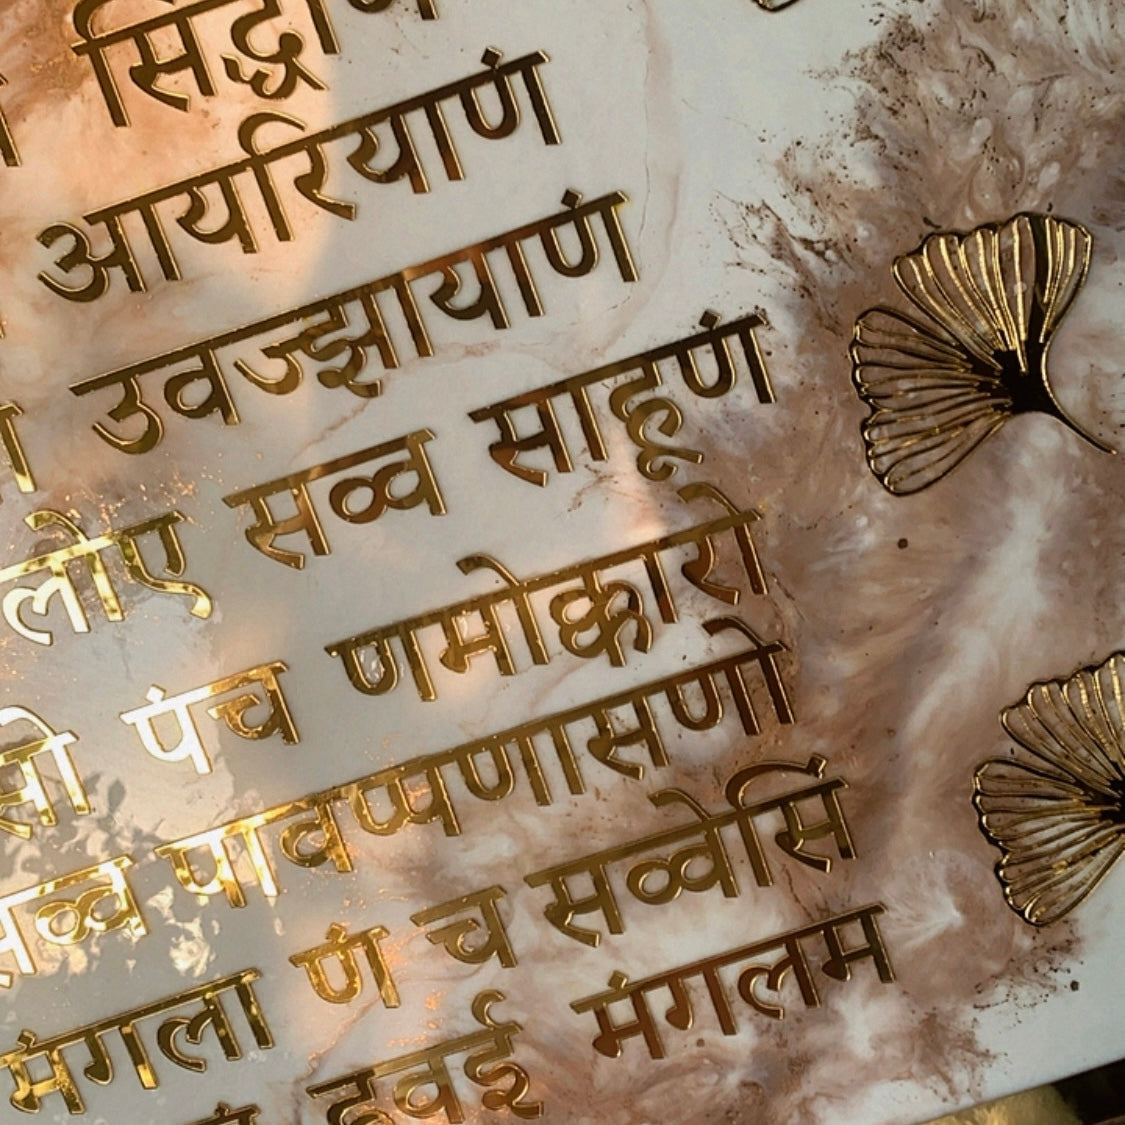 सिद्धाणं
आयरियाणं
उवज्झायाणं
लोए सव्व साहूणं
पंच णमोक्कारो
सव्व पावप्पणासणो
मंगला णं च सव्वेसिं
हवई मंगलम